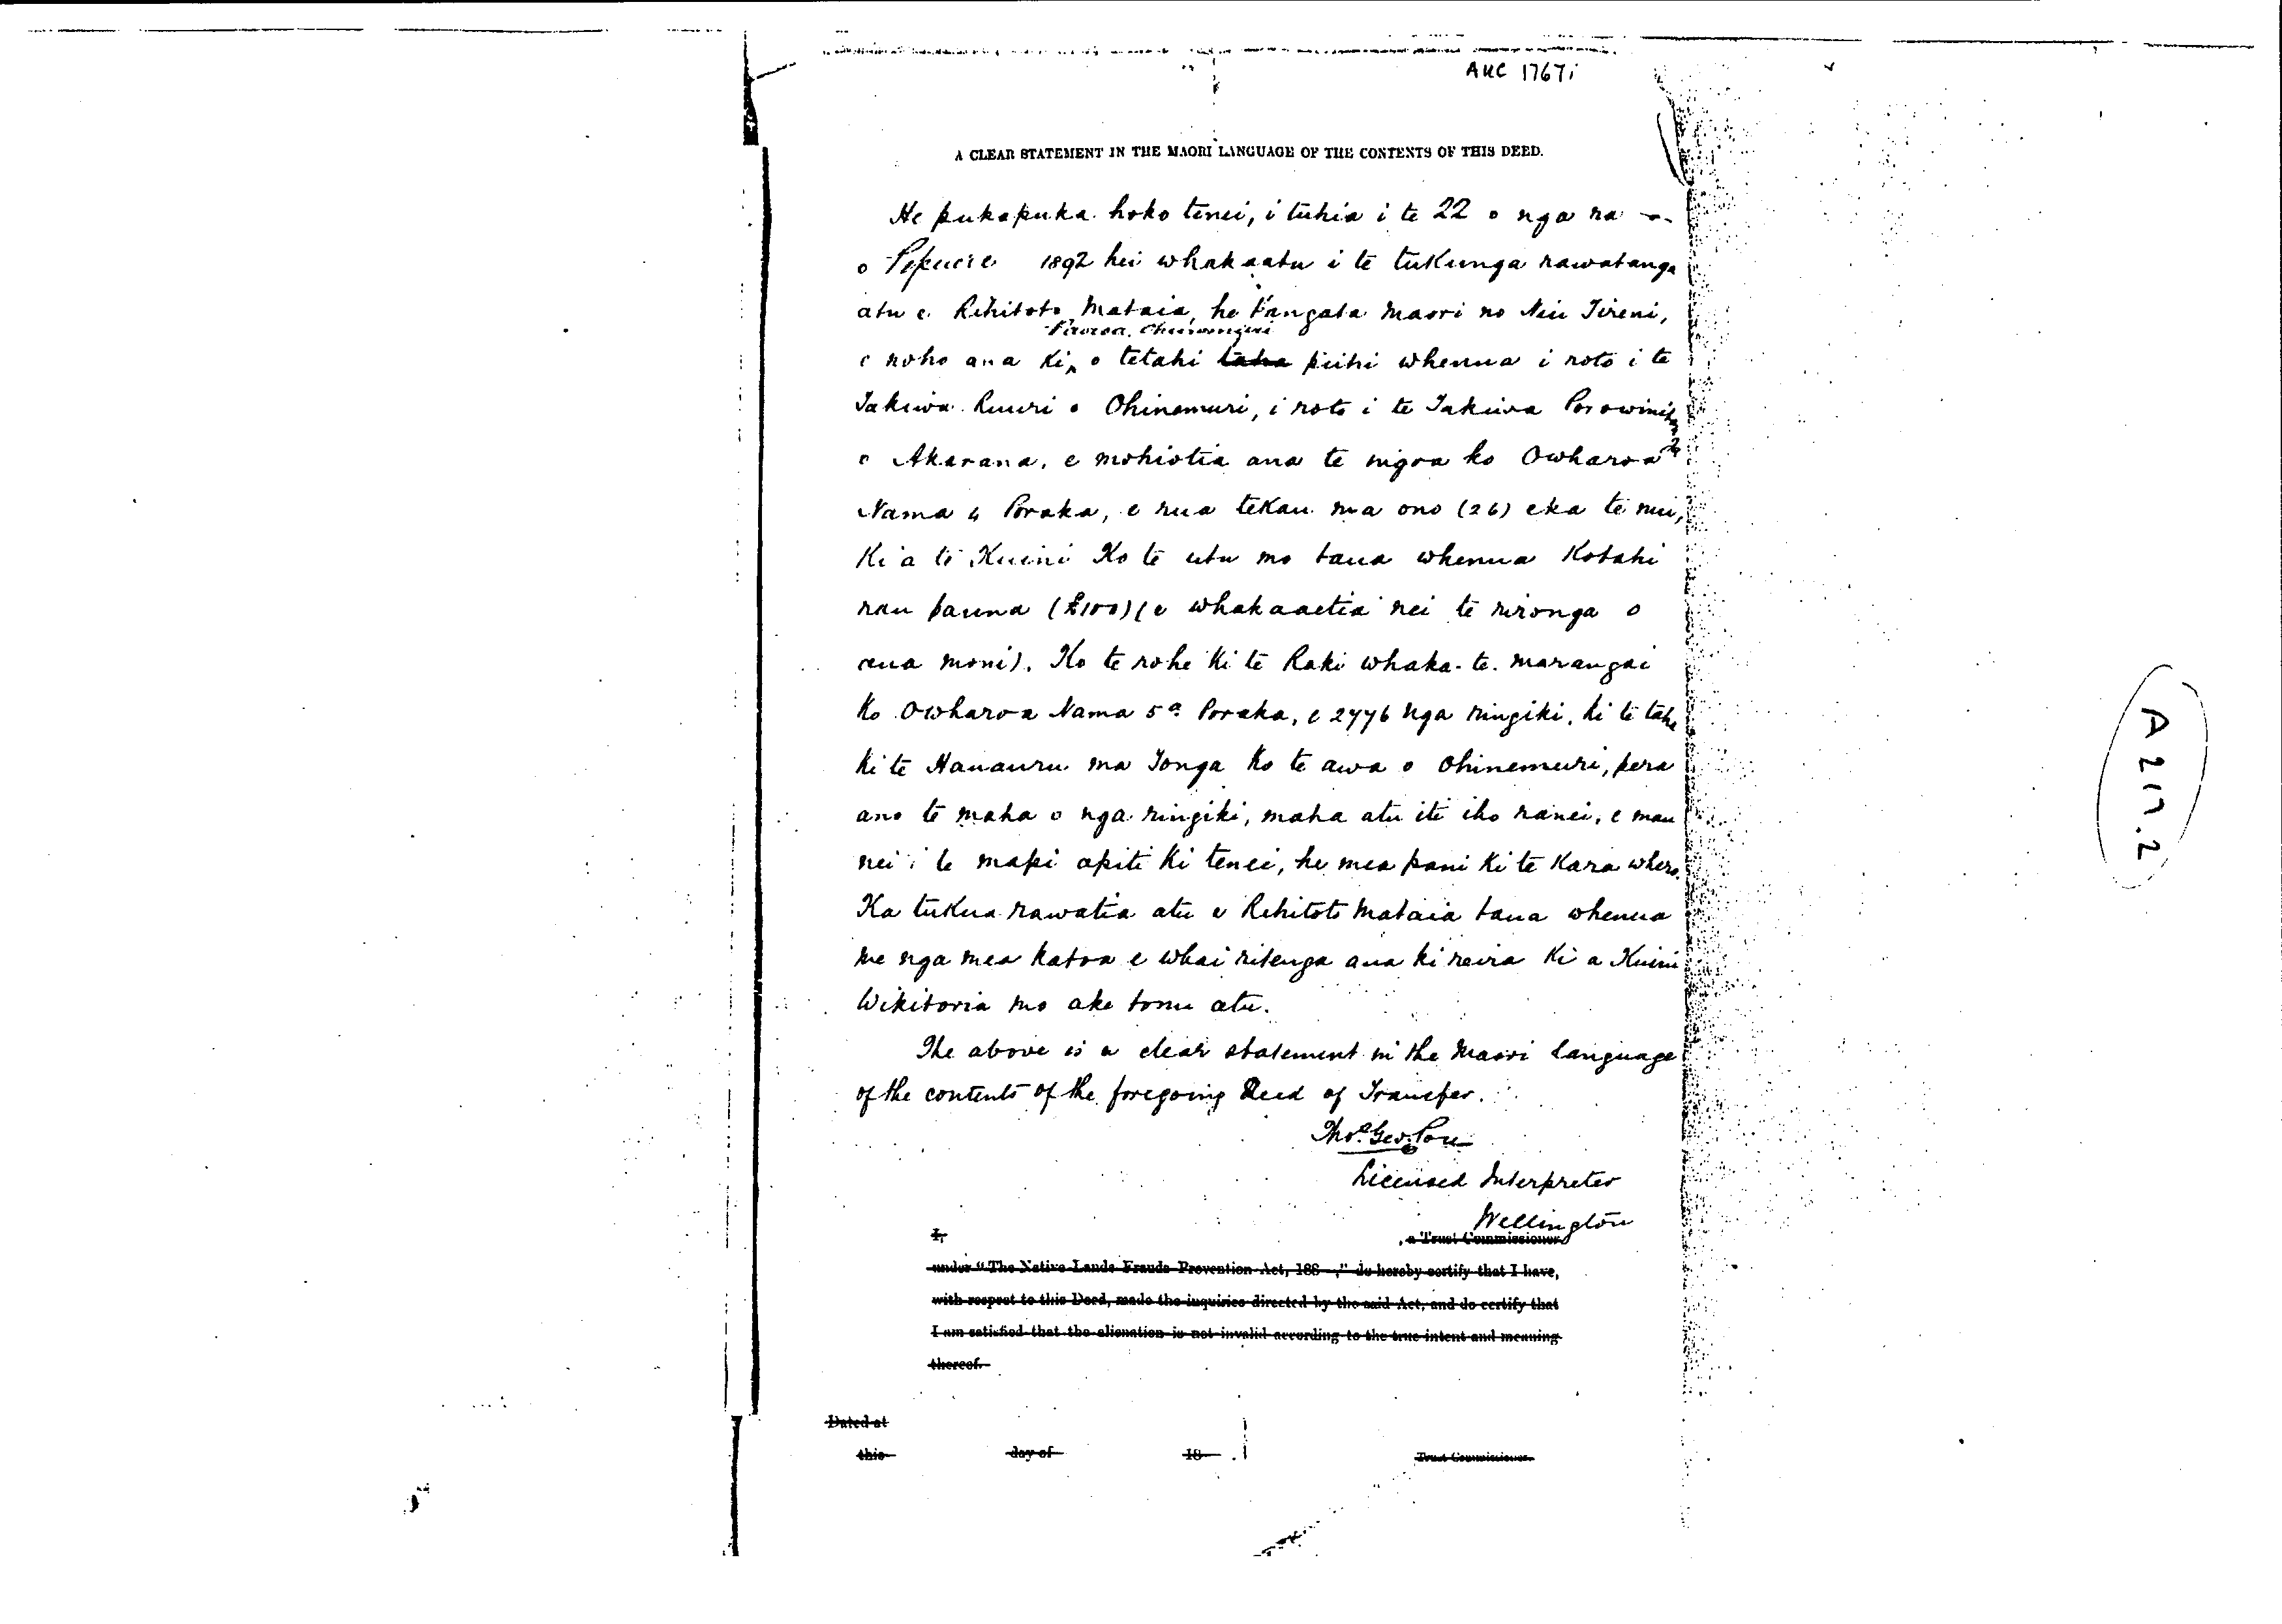 AUC 1767i
A CLEAR STATEMENT IN THE MAORI LANGUAGE OF THE CONTENTS OF THIS DEED.
He pukapuka hoko tenei, i tuhia i te 22 o nga ra
o Pepuere 1892 hei whakaatu i te tukunga rawatanga
atu e Rihitoto Mataia, he tangata Maori no Niu Tireni,
Paeroa, Ohinemuri
e noho ana ki o tetahi taha piihi whenua i roto i te
Takiwa Ruuri o Ohinemuri, i roto i te Takiwa
o Akarana, e mohiotia ana te ingoa ko Owharoa
Nama 4 Poraka, e rua tekau ma ono (26) eka te nui,
Ki a te Kuini Ko te utu mo taua whenua Kotahi
rau pauna (£100) (e whakaaetia nei te rironga o
aua moni). Ko te rohe ki te Raki whaka-te-marangai
ko Owharoa Nama 5a Poraka, e 2776 nga ringiki, ki te taha
ki te Hauauru ma Tonga ko te awa o Ohinemuri, pera
ano te maha o nga ringiki, maha atu iti iho ranei, e mau
nei i te mapi apiti ki tenei, he mea pani ki te kara whero.
Ka tukua rawatia atu e Rihitoto Mataia taua whenua
me nga mea katoa e whai ritenga ana ki reira ki a Kuini
Wikitoria mo ake tonu atu.
The above is a clear statement in the Maori language
of the contents of the foregoing Deed of Transfer.
Thos. Geo. Pou
Licensed Interpreter
Wellington
I, , a Trust Commissioner
under "The Native Lands Frauds Prevention Act, 188 ," do hereby certify that I have,
with respect to this Deed, made the inquiries directed by the said Act, and do certify that
I am satisfied that the alienation is not invalid according to the true intent and meaning
thereof.
Dated at
this day of 18 .
Trust Commissioner.
A 217.2